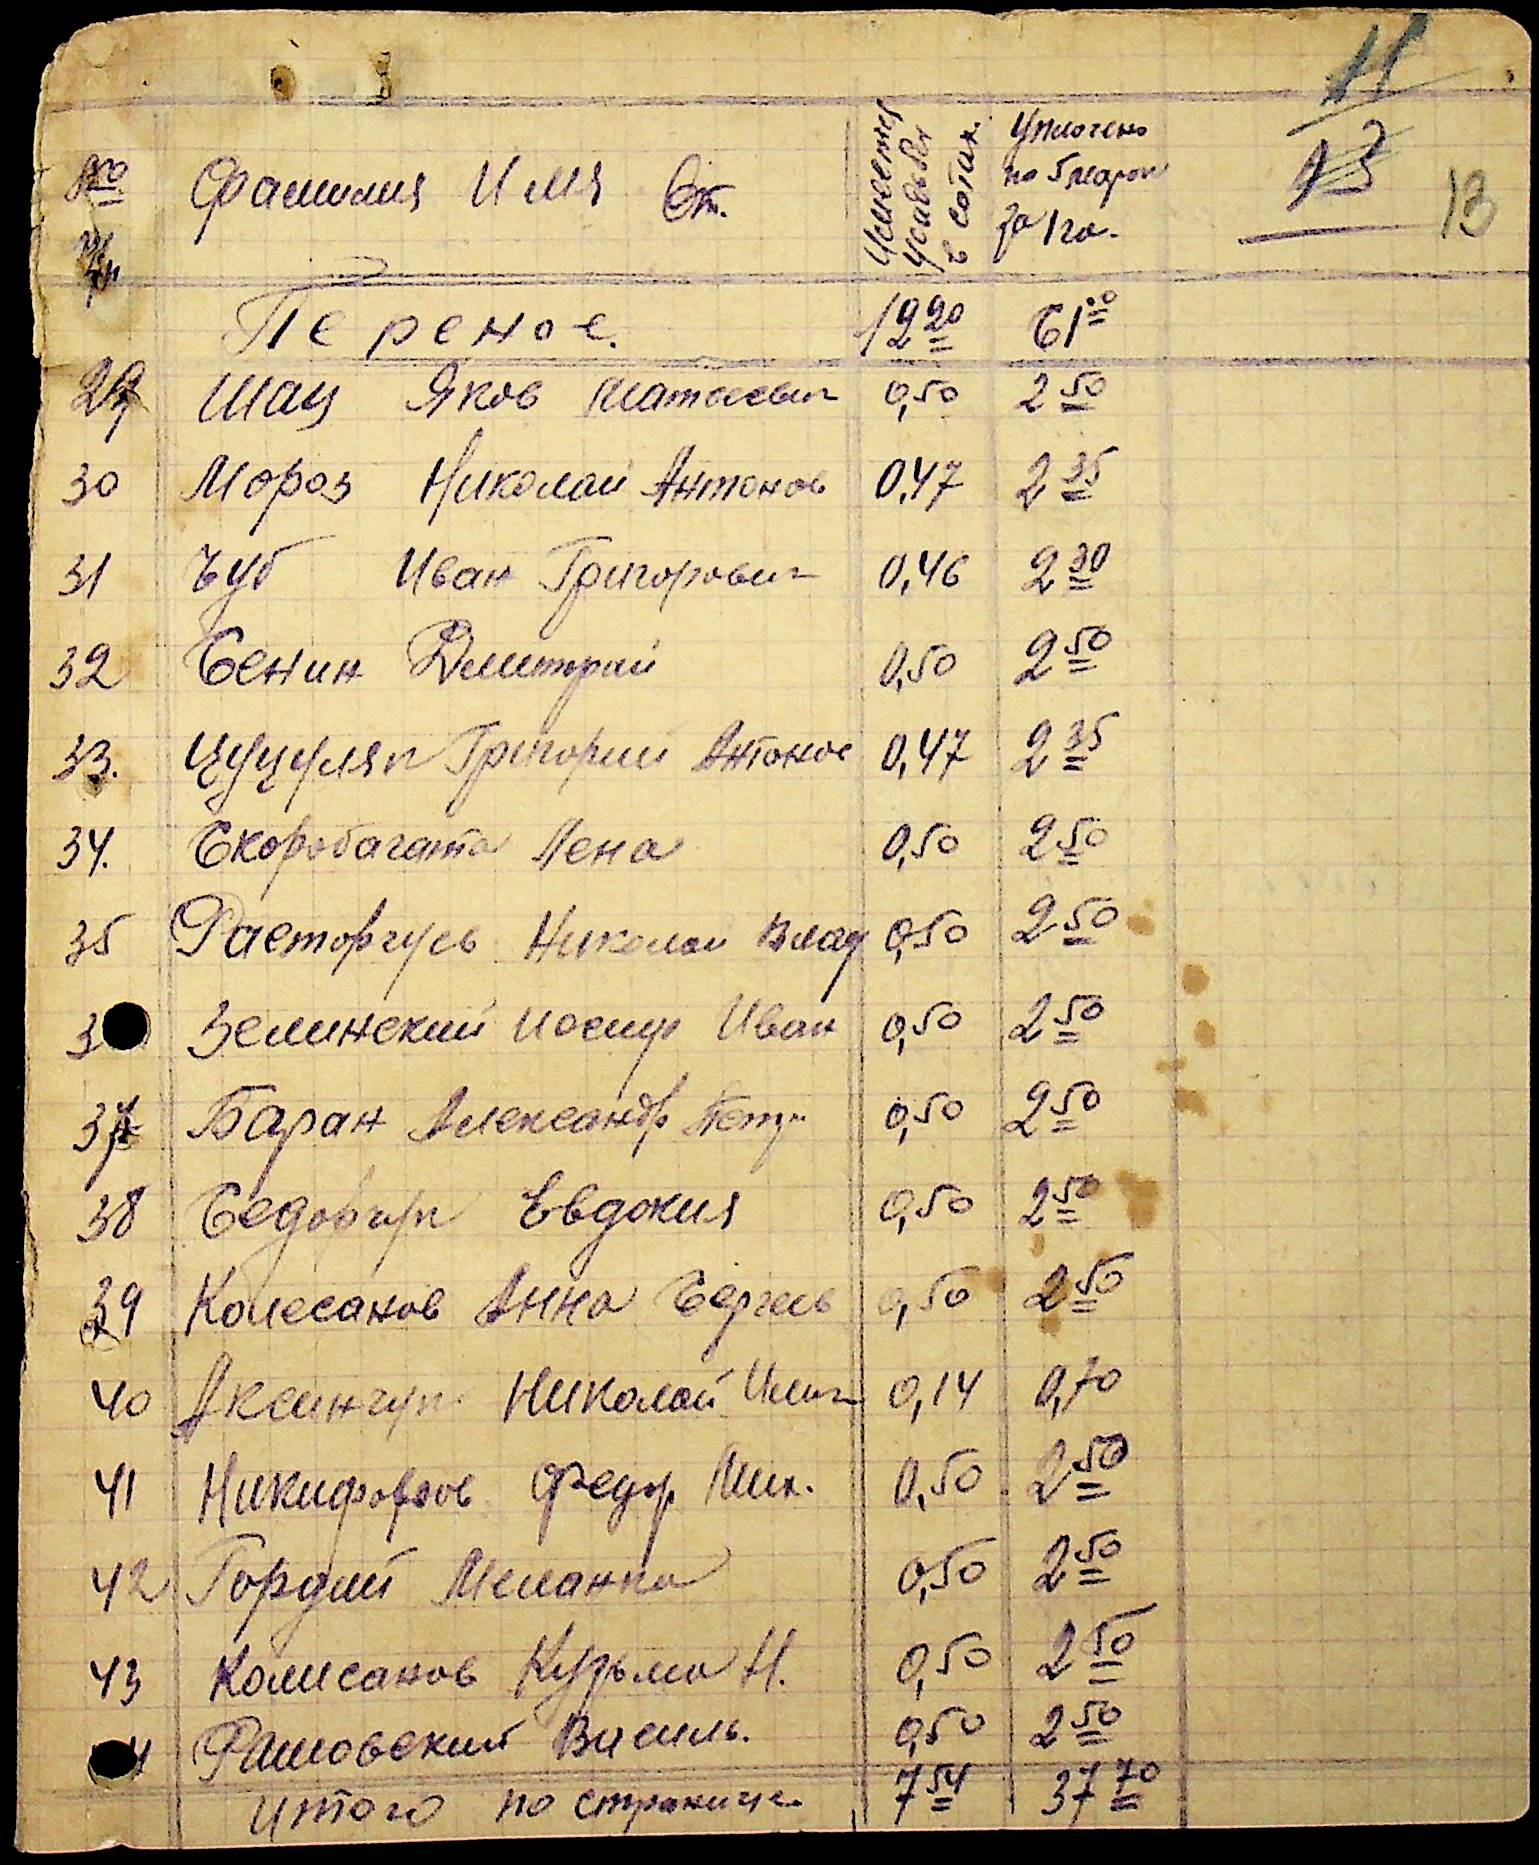 11
13
13
№ Фамилия Имя От. Имеется усадьбы в сотах. Уплочено по 5 марок за 1 га.
п/п
Перенос. 12 20 61 00
29 Шац Яков Матвеевич 0,50 2 50
30 Мороз Николай Антонов 0,47 2 35
31 Чуб Иван Григорович 0,46 2 30
32 Сенин Дмитрий 0,50 2 50
33. Цуцуляп Григорий Антонов 0,47 2 35
34. Скоробагата Лена 0,50 2 50
35 Расторгуев Николай Влад 0,50 2 50
3 Зелинский Иосиф Иван 0,50 2 50
37 Баран Александр Петр 0,50 2 50
38 Седовчук Евдокия 0,50 2 50
39 Колесанов Анна Сергеев 0,50 2 50
40 Аксинчук Николай Илич 0,14 0,70
41 Никифоров Федор Мих. 0,50 2 50
42 Гордий Меланка 0,50 2 50
43 Колисанов Кузьма Н. 0,50 2 50
4 Рашовский Василь. 0,50 2 50
итого по странице 7 54 37 70